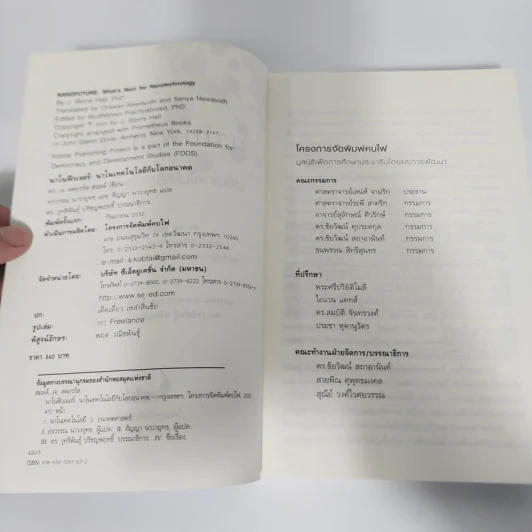 NANOFUTURE: What's Next for Nanotechnology
By J. Storrs Hall, PhD
Translated by Orawan Nawayuth and Sanya Nawayuth
Edited by Wuthibhan Prachyabrued, PhD
Copyright © by J. Storrs Hall
Copyright arranged with Prometheus Books
John Glenn Drive, Amherst, New York, 14228-2197
Kobfai Publishing Project is a part of the Foundation for
Democracy and Development Studies (FDDS).
นาโนฟิวเจอร์: นาโนเทคโนโลยีกับโลกอนาคต
ดร.เจ. สตอร์รส ฮอลล์ เขียน
อรวรรณ นาวายุทธ และ สัญญา นาวายุทธ แปล
ดร.วุฒิพันธุ์ ปรัชญพฤทธิ์ บรรณาธิการ
พิมพ์ครั้งแรก กันยายน
โครงการจัดพิมพ์คบไฟ
ถนนสุขุมวิท 79 เขตวัฒนา กรุงเทพฯ 10260
โทร. 0-2332-2543-4 โทรสาร
e-mail: s.kobfai@gmail.com
จัดจำหน่ายโดย: บริษัท ซีเอ็ดยูเคชั่น จำกัด (มหาชน)
โทรศัพท์ 0-2739-8000, 0-2739-8222 โทรสาร
http://www.se-ed.com
ปก: เด็ดเดี่ยว เหล่าสินชัย
รูปเล่ม: 101 Freelance
พิสูจน์อักษร: พฤต วณิชพันธุ์
ราคา 360 บาท
ข้อมูลทางบรรณานุกรมของสำนักหอสมุดแห่งชาติ
ฮอลล์, เจ. สตอร์รส.
นาโนฟิวเจอร์: นาโนเทคโนโลยีกับโลกอนาคต.--กรุงเทพฯ: โครงการจัดพิมพ์คบไฟ,
472 หน้า.
1. นาโนเทคโนโลยี 2. อนาคตศาสตร์
I. อรวรรณ นาวายุทธ, ผู้แปล. II. สัญญา นาวายุทธ, ผู้แปล.
III. ดร.วุฒิพันธุ์ ปรัชญพฤทธิ์, บรรณาธิการ. IV. ชื่อเรื่อง.
ISBN:
โครงการจัดพิมพ์คบไฟ
มูลนิธิเพื่อการศึกษาประชาธิปไตยและการพัฒนา
คณะกรรมการ
ศาสตราจารย์เสน่ห์ จามริก ประธาน
ศาสตราจารย์ระพี สาคริก กรรมการ
อาจารย์สุลักษณ์ ศิวรักษ์ กรรมการ
ดร.ชัยวัฒน์ คุประตกุล กรรมการ
ดร.ชัยวัฒน์ สถาอานันท์ กรรมการ
ธนพรรณ สิทธิสุนทร กรรมการ
ที่ปรึกษา
พระศรีปริยัติโมลี
โอแวน แคทส์
ดร.สมบัติ จันทรวงศ์
ประชา หุตานุวัตร
คณะทำงานฝ่ายจัดการ/บรรณาธิการ
ดร.ชัยวัฒน์ สถาอานันท์
สายพิณ ศุพุทธมงคล
สุณีย์ วงศ์ไวศยวรรณ